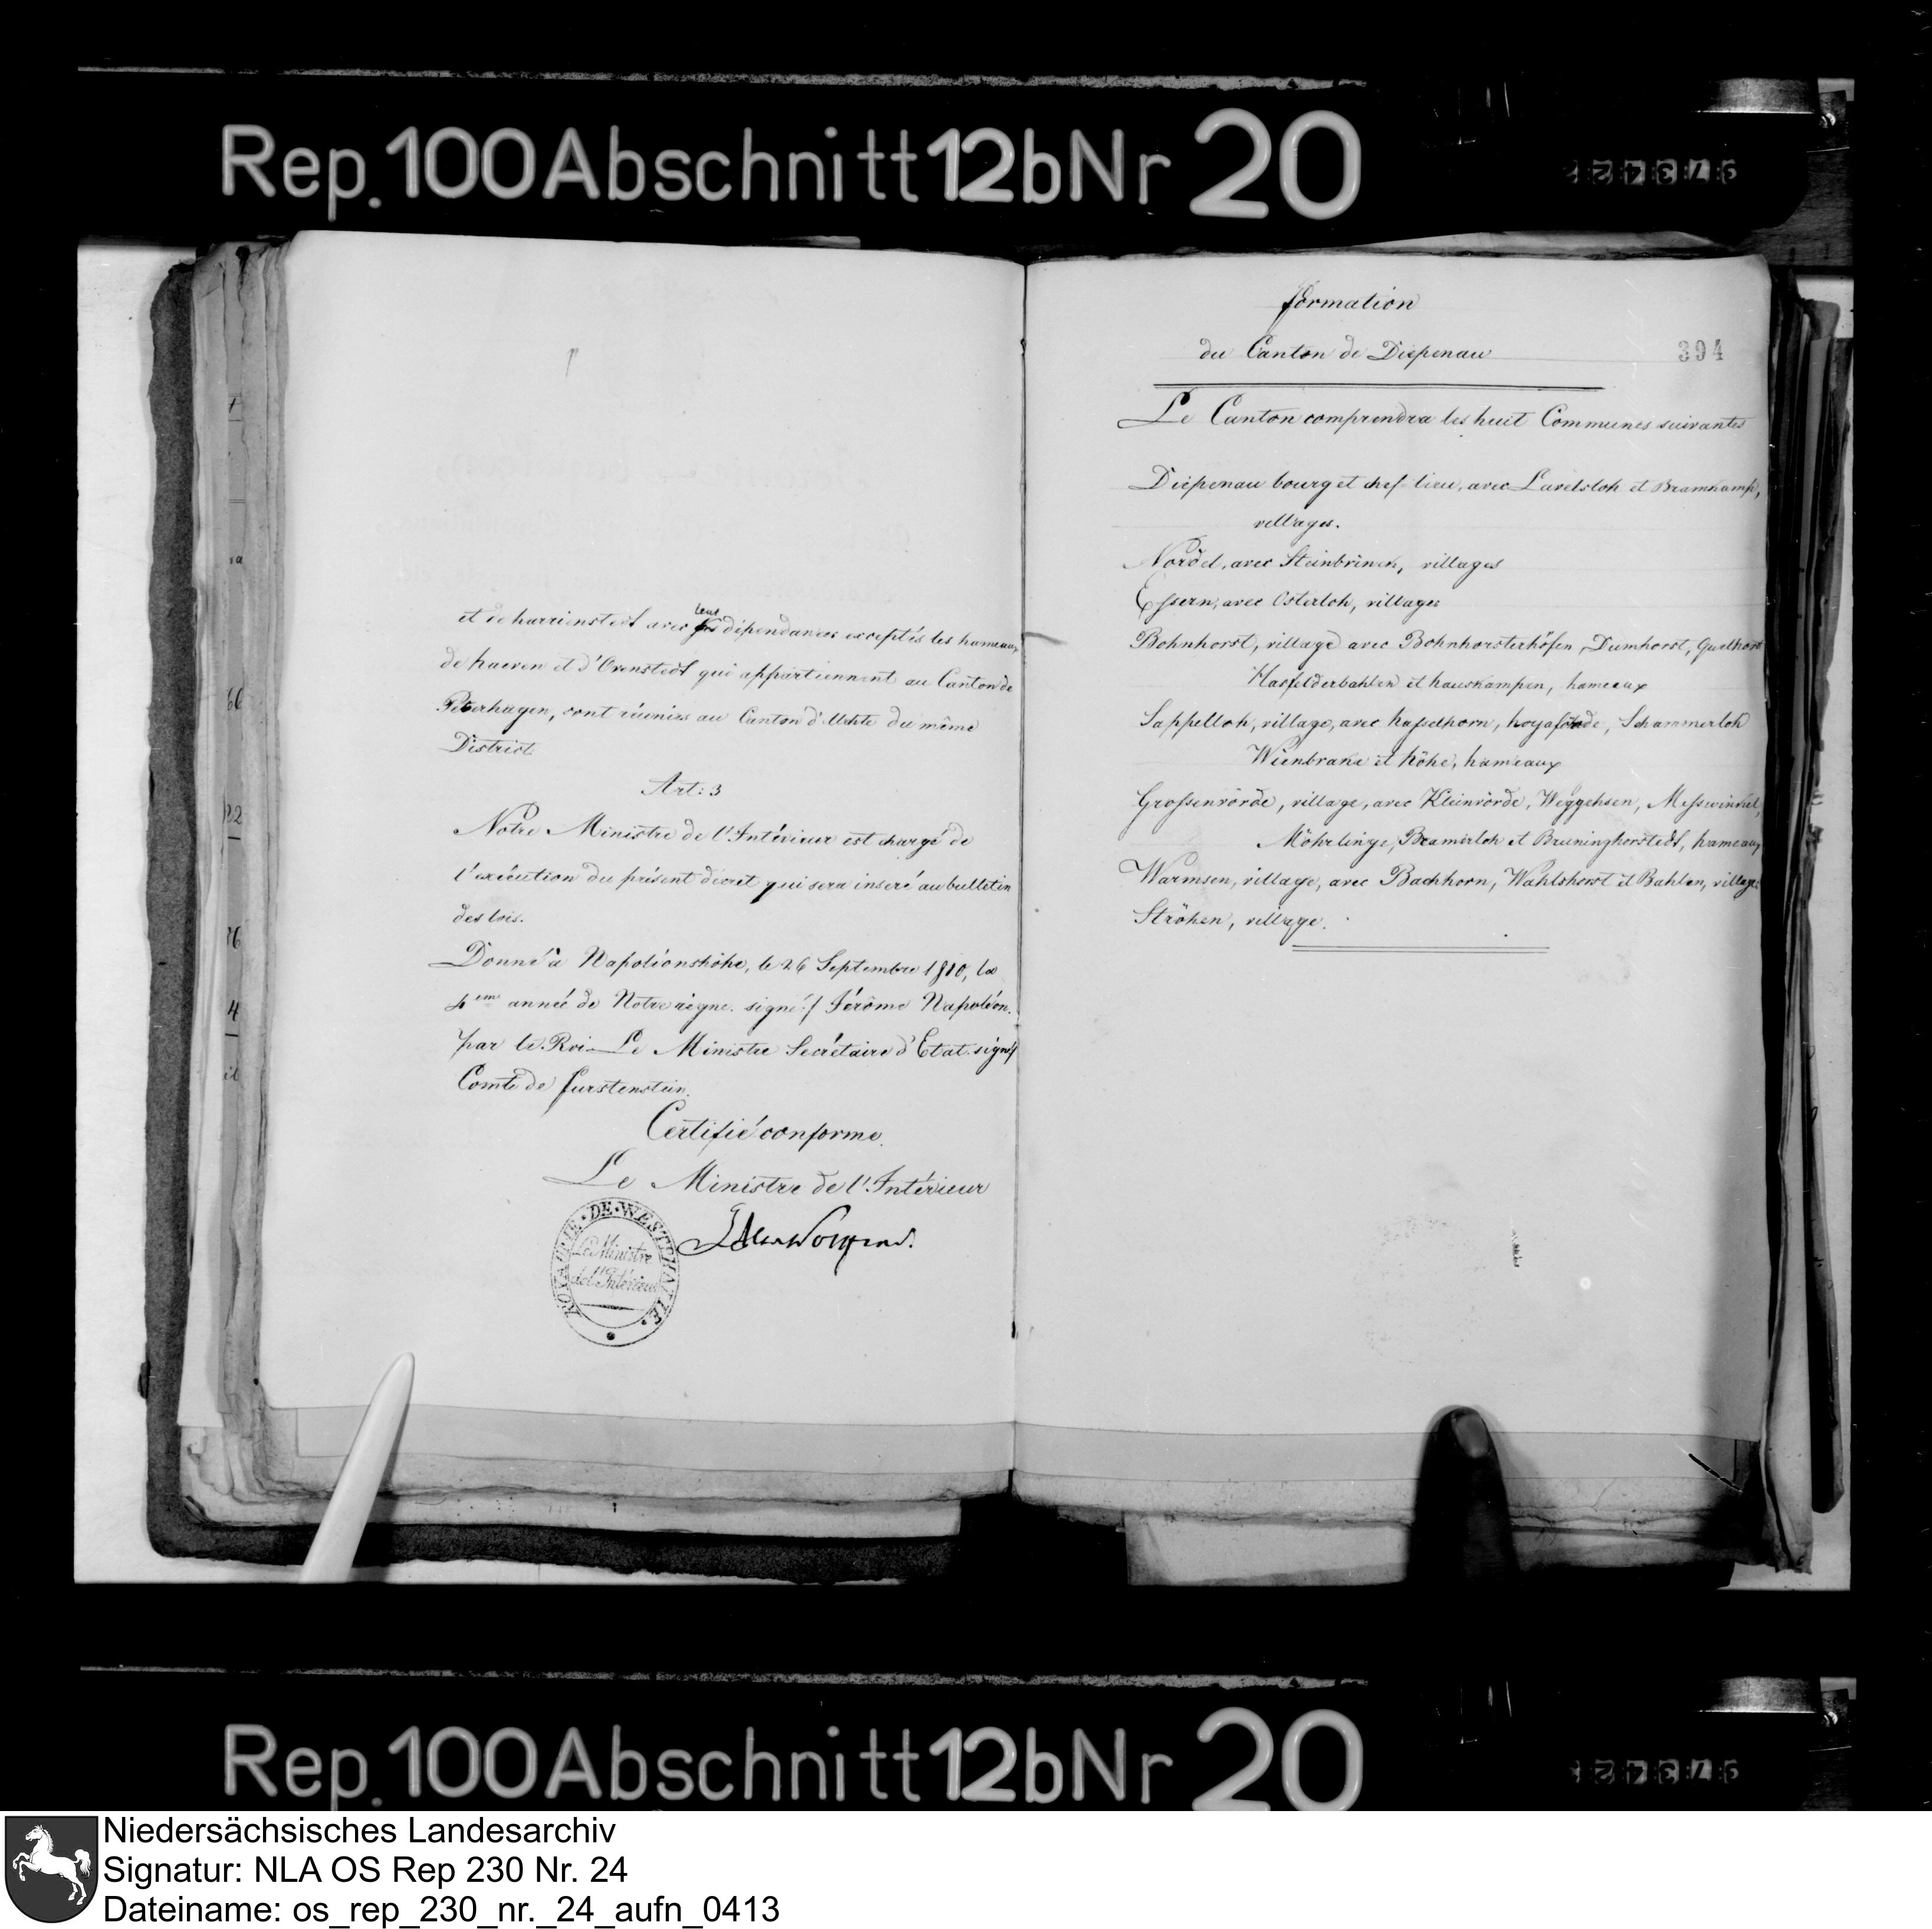 Rep. 100 Abschnitt 12b Nr 20
et de harrienstedt avec leurs dépendances exceptés les hameaux
de haeven et d'Ovenstedt qui appartiennent au Canton de
Petershagen, sont réunies au Canton d'Uchte du même
District.
Art: 3
Notre Ministre de l'Intérieur est chargé de
l'exécution du présent décret qui sera inseré au bulletin
des lois.
Donné à Napoléonshöhe, le 26 Septembre 1810, la
4eme année de Notre règne. signé:/ Jérôme Napoléon.
par le Roi Le Ministre Secrétaire d'Etat. signé/
Comte de Furstenstein.
Certifié conforme.
Le Ministre de l'Intérieur
ROYAUME DE WESTPHALIE
Le Ministre
de l'Intérieur
formation
du Canton de Diepenau
394
Le Canton comprendra les huit Communes suivantes
Diepenau bourg et chef-lieu, avec Lavelsloh et Bramkamp,
villages.
Nordel, avec Steinbrinck, villages
Essern, avec Osterloh, villages
Bohnhorst, village avec Bohnhorsterhöfen, Dumhorst, Quelhorst
Hasfelderbahlen et hauskampen, hameaux
Sappelloh, village, avec hasselhorn, hoyasörde, Schammerloh
Wienbrake et höhe, hameaux
Grossenvörde, village, avec Kleinvörde, Weggehsen, Messwinkel,
Möhrlinge, Bramerloh et Bruninghorstedt, hameaux
Warmsen, village, avec Bachhorn, Wahlshorst et Bahlen, villages
Ströhen, village.
Rep. 100 Abschnitt 12b Nr 20
Niedersächsisches Landesarchiv
Signatur: NLA OS Rep 230 Nr. 24
Dateiname: os_rep_230_nr._24_aufn_0413